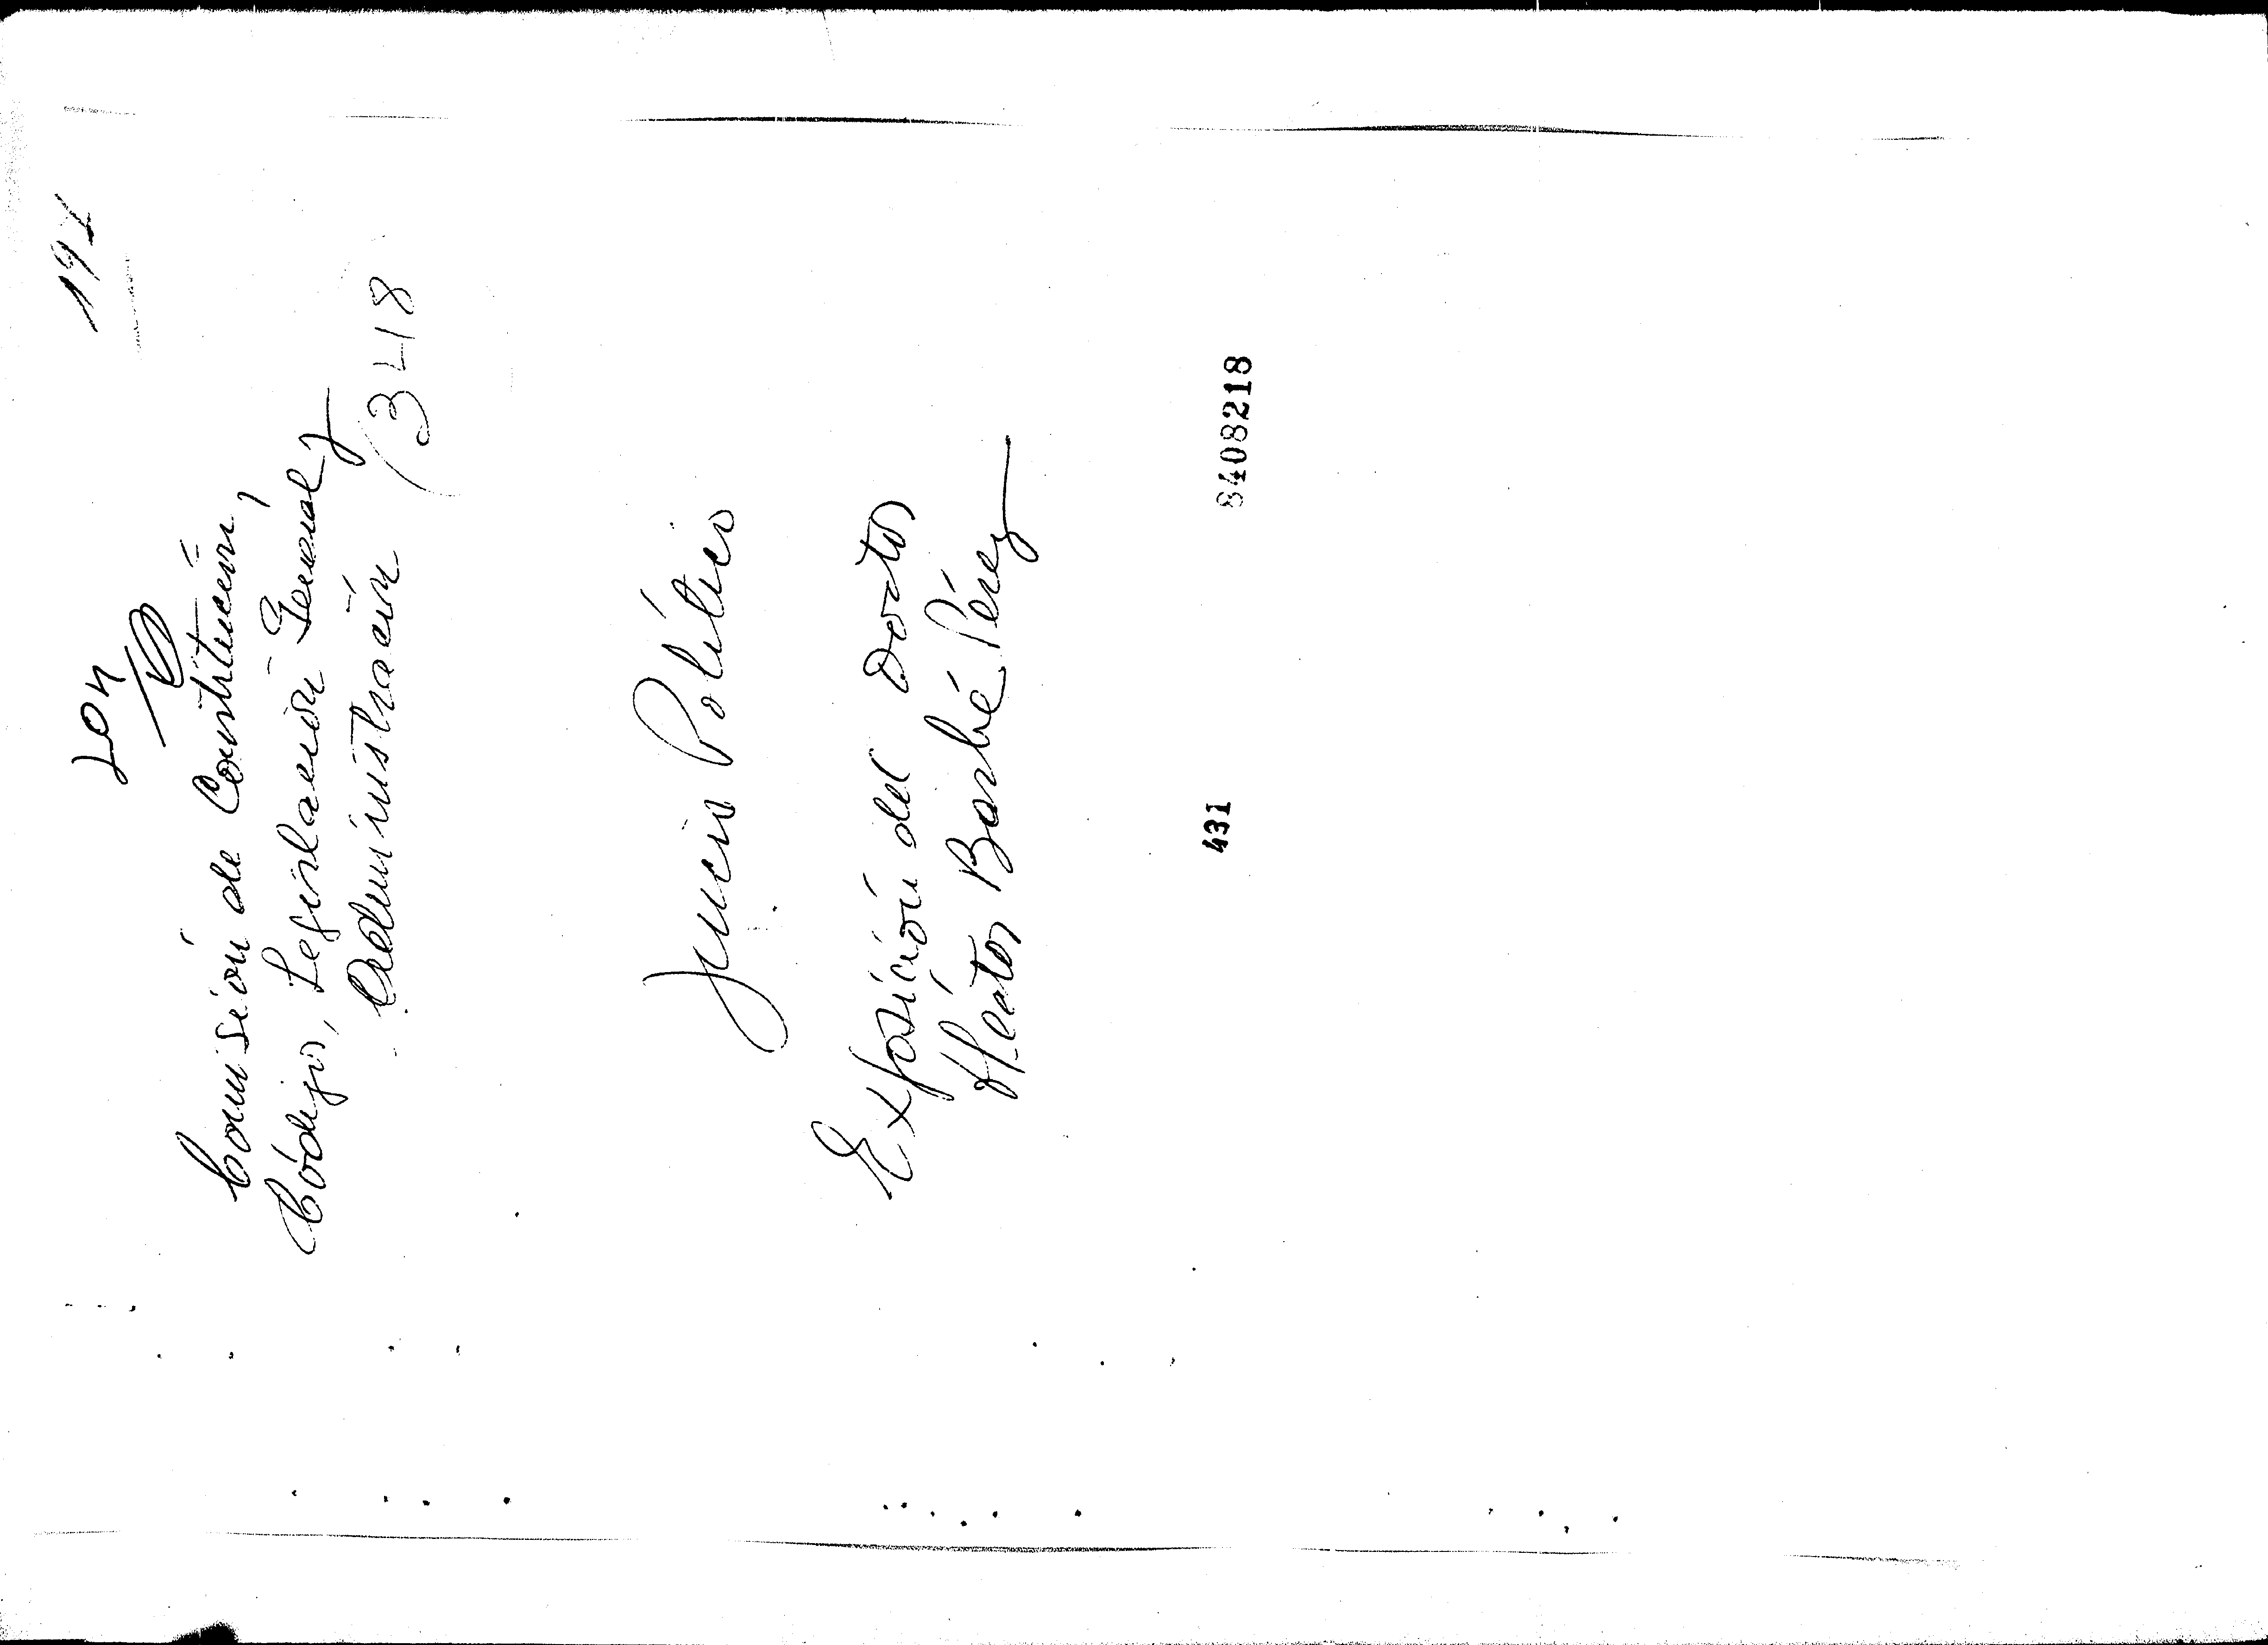 204
Comisión de Constitución,
Códigos, Legislación General y
Administración
(3418
Juicio Político
Exposición del Doctor
Héctor Barbé Pérez
431 8408218